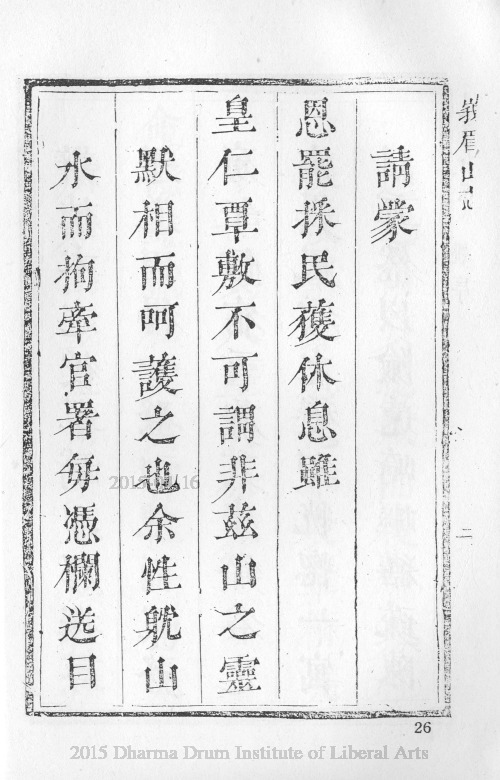 峩眉山志
請蒙
恩罷採民獲休息雖
皇仁覃敷不可謂非茲山之靈
默相而呵護之也余性躭山
水而拘牽官署每憑欄送目
二
26
2015 Dharma Drum Institute of Liberal Arts